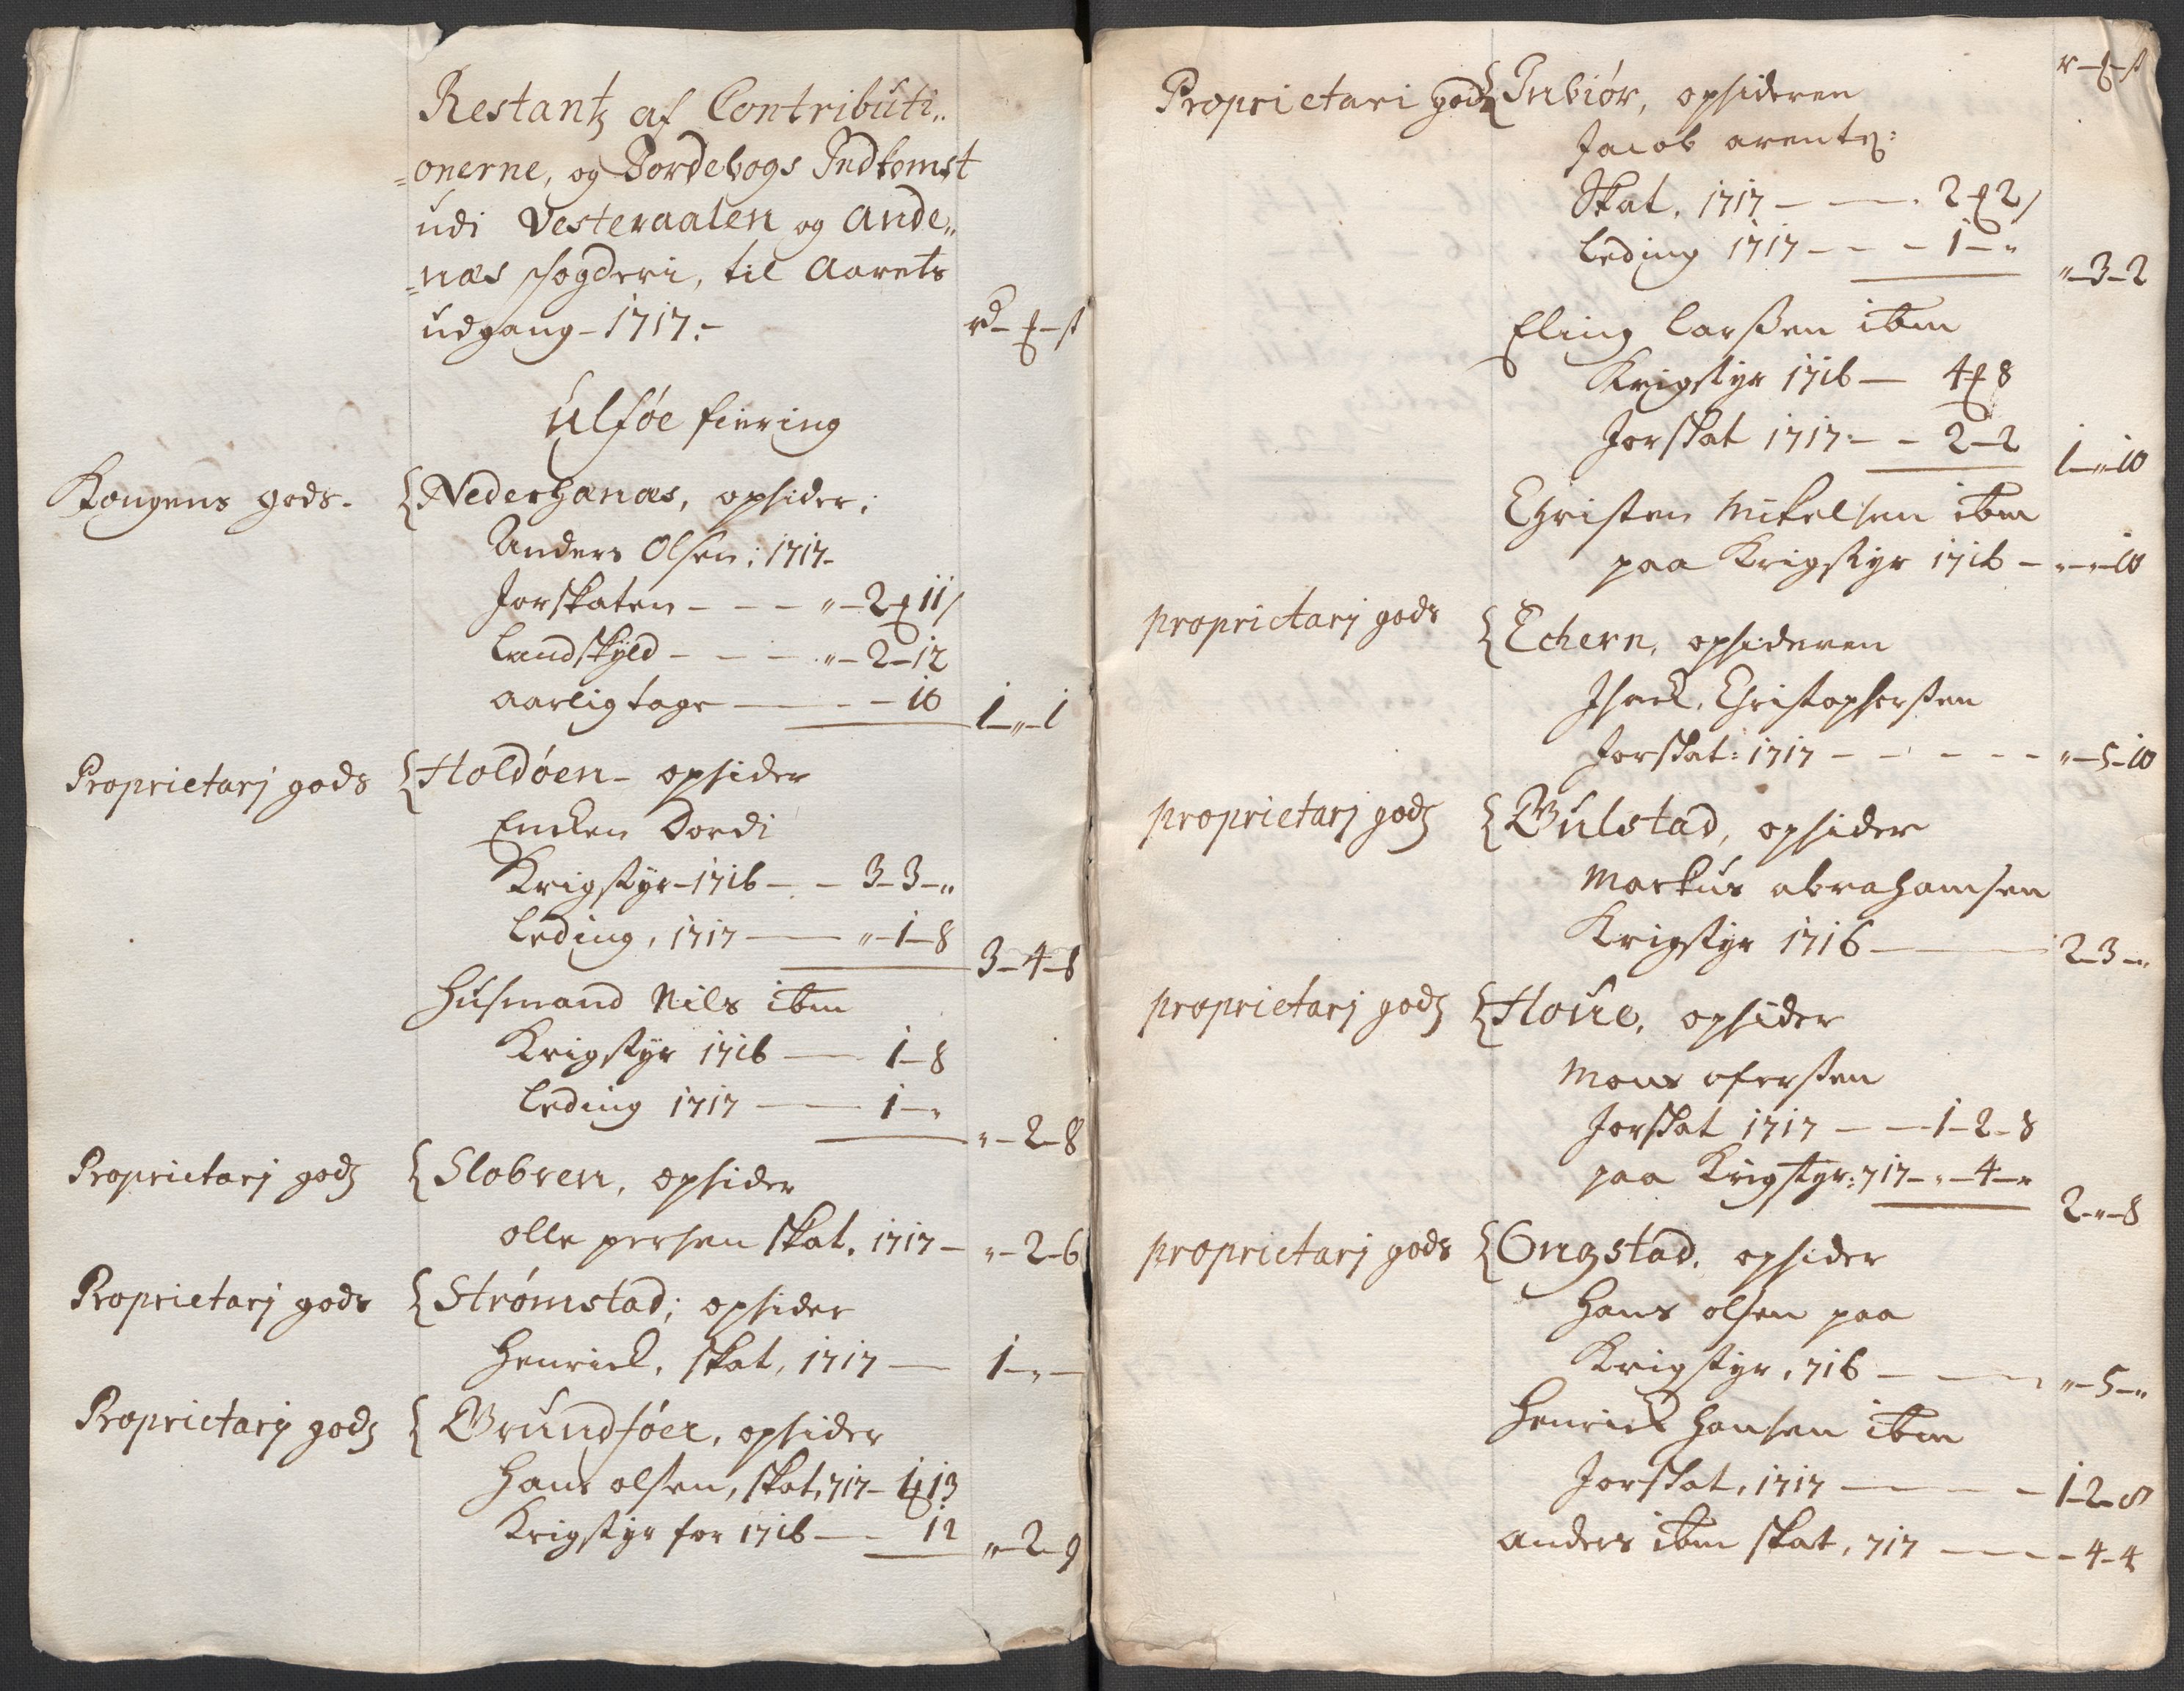 Restantz af Contributi„
„onerne, og Jordebogs Indkomst
udi Vesteraalen og Ande„
„næs fogderi, til Aarets
udgang - 1717 :-
Ulføe fiering
Kongens gods. { Nederhanæs, opsider:
Anders Olsen: 1717-
Jorskaten - - - " - 2 - 11
Landskÿld - - - " - 2 - 12
aarligtage - - 10    1 - " - 1
Proprietarj gods { Holdøen - opsider
Encken Dordi
Krigstÿr - 1716 - - 3 - 3 - "
Leding, 1717 - " - 1 - 8    3 - 4 - 8
Husmand Nils ibm
Krigstÿr 1716 - 1 - 8
Leding 1717 - 1 - "    " - 2 - 8
Proprietarj godz { Slobren, opsider
olle persen skat. 1717 - " - 2 - 6
Proprietarj gods { Strømstad; opsider
Henrick, skat, 1717 - 1 - " -
Proprietarij godz { Grundføer, opsider
Hans olsen, skat, 717 - 1 - 13
Krigstÿr for 1716 - 12    " - 2 - 9
Proprietari godz { Indiør, opsideren
Jacob arentz:
Skat, 1717 - - 2 - 2
Leding 1717 - - - 1 - "    " - 3 - 2
Eling Larssen ibm
Krigstÿr 1716 - 4 - 8
Jorskat 1717 - - 2 - 2    1 - " - 10
Christen Mikelsen ibm
paa Krigstÿr 1716 - " - " - 10
proprietarj gods { Echern, opsideren
Isack, Christophersen
Jorskat: 1717 - - - - - " - 5 - 10
proprietarj godz { Bulstad, opsider
Markus abrahamsen
Krigstÿr 1716 - 2 - 3 - "
proprietarj godz { Houe, opsider
Mons ofersen
Jorskat 1717 - - 1 - 2 - 8
paa Krigstyr: 717 - " - 4 - "    2 - " - 8
proprietarj gods { Ongstad, opsider
Hans olsen paa
Krigstÿr, 716 - - - " - 5 - "
Henrick Hansen ibm
Jorskat, 1717 - - - 1 - 2 - 8
Anders ibm skat, 717 - - - 4 - 4